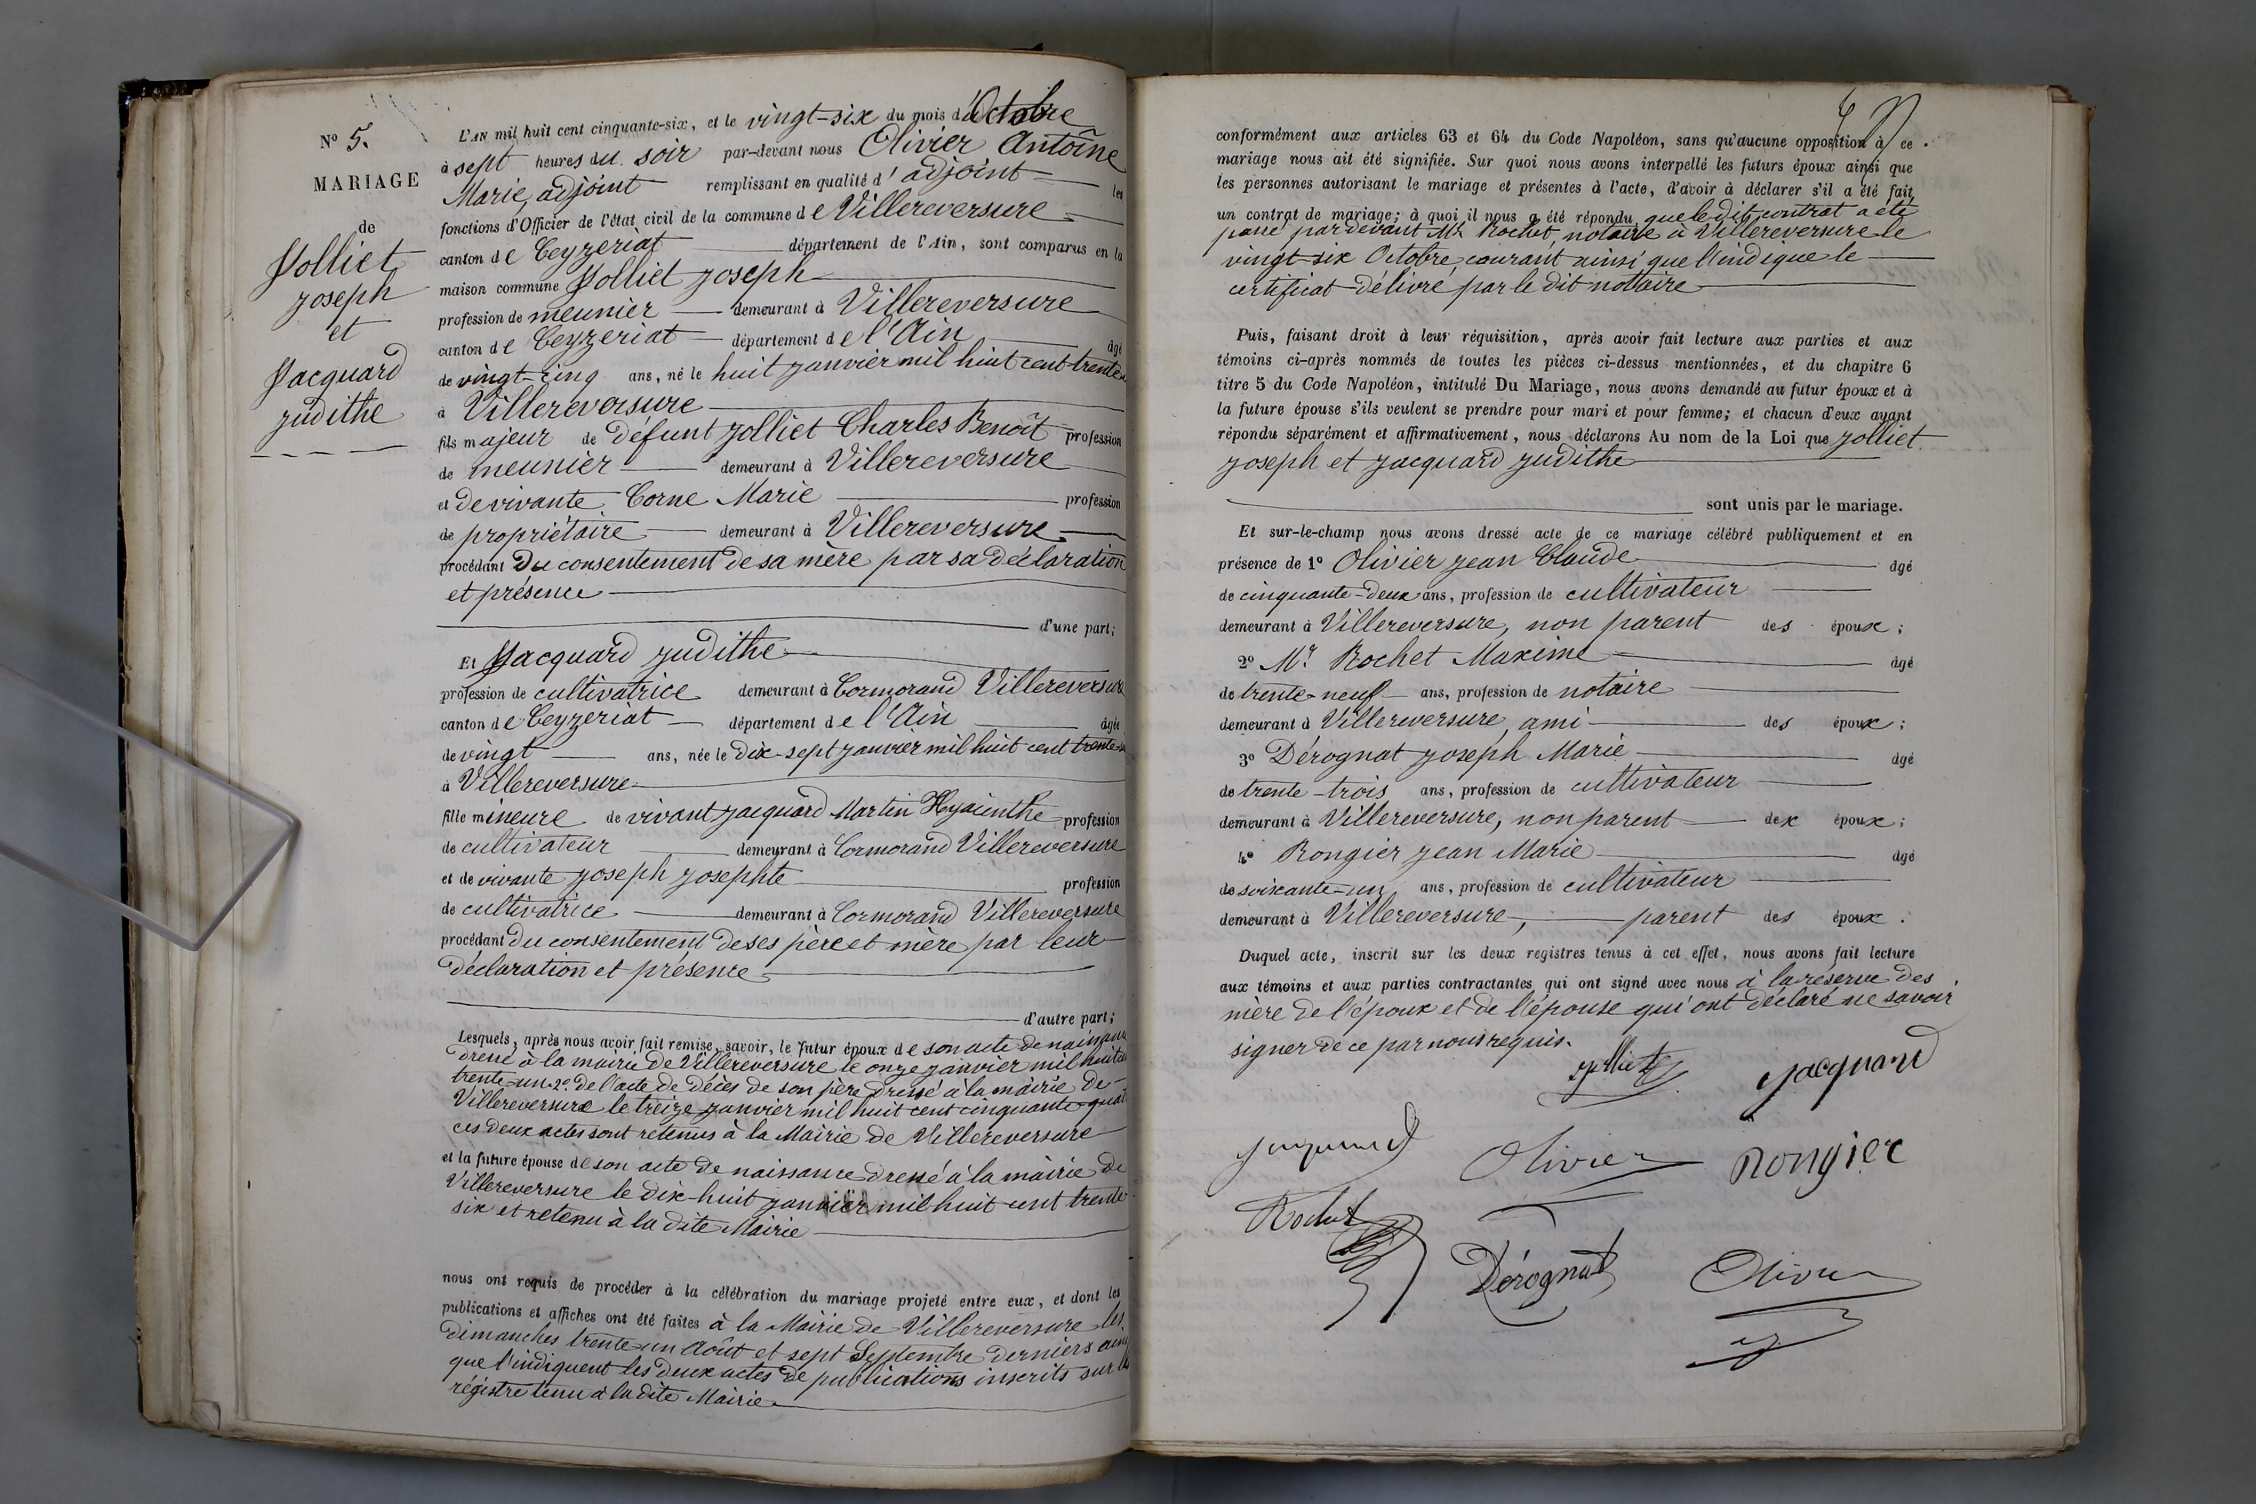 N° 5.
MARIAGE
de
Jolliet
Joseph
et
Jacquard
Judithe
L'AN mil huit cent cinquante-six, et le vingt-six du mois d'Octobre
à sept heures du soir par-devant nous Olivier Antoîne
Marie, adjoint remplissant en qualité d'adjoint les
fonctions d'Officier de l'état civil de la commune de Villereversure
canton de Ceyzeriat département de l'Ain, sont comparus en la
maison commune Jolliet Joseph
profession de meunier demeurant à Villereversure
canton de Ceyzeriat département de l'Ain âgé
de vingt-cinq ans, né le huit Janvier mil huit cent trente
à Villereversure
fils majeur de défunt Jolliet Charles Benoît profession
de meunier demeurant à Villereversure
et de vivante Corne Marie profession
de propriétaire demeurant à Villereversure
procédant du consentement de sa mère par sa déclaration
et présence
d'une part;
Et Jacquard Judithe
profession de cultivatrice demeurant à Cormorand Villereversure
canton de Ceyzeriat département de l'Ain âgée
de vingt ans, née le dix-sept Janvier mil huit cent trente
à Villereversure
fille mineure de vivant Jacquard Martin Hyacinthe profession
de cultivateur demeurant à Cormorand Villereversure
et de vivante Joseph Josephte profession
de cultivatrice demeurant à Cormorand Villereversure
procédant du consentement de ses père et mère par leur
déclaration et présence
d'autre part;
Lesquels, après nous avoir fait remise, savoir, le futur époux de son acte de naissance
dressé à la mairie de Villereversure le onze Janvier mil huit cent
trente-un. 2°. de l'acte de décès de son père dressé à la mairie de
Villereversure le treize Janvier mil huit cent cinquante-quat
ces deux actes sont retenus à la Mairie de Villereversure
et la future épouse de son acte de naissance dressé à la mairie de
Villereversure le dix-huit Janvier mil huit cent trente
six et retenu à la dite Mairie
nous ont requis de procéder à la célébration du mariage projeté entre eux, et dont les
publications et affiches ont été faites à la Mairie de Villereversure les
dimanches trente-un Août et sept Septembre derniers ainsi
que l'indiquent les deux actes de publications inscrits sur le
régistre tenu à la dite Mairie
conformément aux articles 63 et 64 du Code Napoléon, sans qu'aucune opposition à ce
mariage nous ait été signifiée. Sur quoi nous avons interpellé les futurs époux ainsi que
les personnes autorisant le mariage et présentes à l'acte, d'avoir à déclarer s'il a été fait
un contrat de mariage; à quoi il nous a été répondu que le dit contrat a été
passé pardevant Me Rochet, notaire à Villereversure le
vingt-six Octobre courant ainsi que l'indique le
certificat délivré par le dit notaire
Puis, faisant droit à leur réquisition, après avoir fait lecture aux parties et aux
témoins ci-après nommés de toutes les pièces ci-dessus mentionnées, et du chapitre 6
titre 5 du Code Napoléon, intitulé Du Mariage, nous avons demandé au futur époux et à
la future épouse s'ils veulent se prendre pour mari et pour femme; et chacun d'eux ayant
répondu séparément et affirmativement, nous déclarons Au nom de la Loi que Jolliet
Joseph et Jacquard Judithe
sont unis par le mariage.
Et sur-le-champ nous avons dressé acte de ce mariage célébré publiquement et en
présence de 1° Olivier Jean Claude âgé
de cinquante-deux ans, profession de cultivateur
demeurant à Villereversure, non parent des époux;
2° Mr Rochet Maxime âgé
de trente-neuf ans, profession de notaire
demeurant à Villereversure, ami des époux;
3° Dérognat Joseph Marie âgé
de trente-trois ans, profession de cultivateur
demeurant à Villereversure, non parent des époux;
4° Rongier Jean Marie âgé
de soixante-un ans, profession de cultivateur
demeurant à Villereversure, parent des époux.
Duquel acte, inscrit sur les deux registres tenus à cet effet, nous avons fait lecture
aux témoins et aux parties contractantes qui ont signé avec nous à la réserve des
mère de l'époux et de l'épouse qui ont déclaré ne savoir
signer de ce par nous requis.
Jolliet Jacquard
Jacquard Olivier Rongier
Rochet Dérognat Olivier